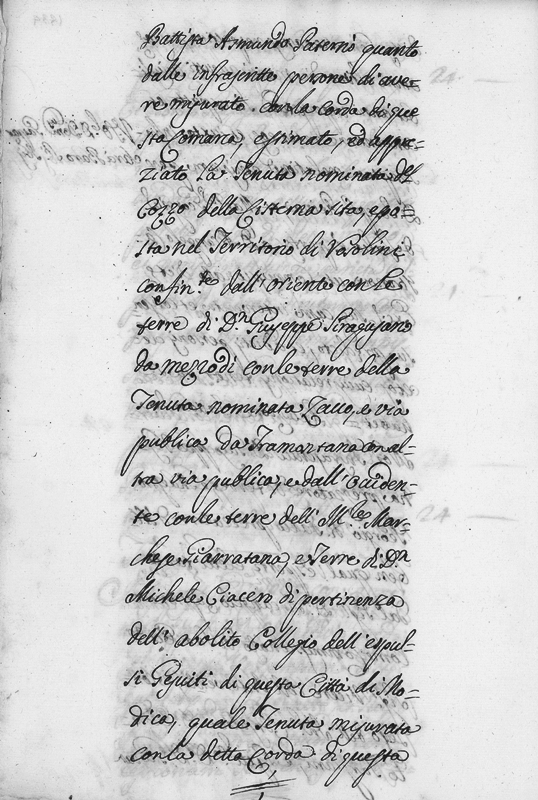 Battista Asmundo Paternò quanto
dalle infrascritte persone di ave=
re misurato con la corda di que
sta Comarca, estimato, ed appre=
ziato la Tenuta nominata del
Cozzo della Cisterna sita, e po=
sta nel Territorio di
confin.te dall'oriente con le
terre di D.n Giuseppe
da mezzodì con le terre della
Tenuta nominata Zacco, e via
publica da Tramontana con al-
tra via publica, e dall'occiden-
te con le terre dell' M.le Mar-
chese Giarratana, e Terre di D.n
Michele Ciacero di pertinenza
dell' abolito Collegio dell' espul-
si Gesuiti di questa Città di Mo-
dica, quale Tenuta misurata
con la detta Corda di questa